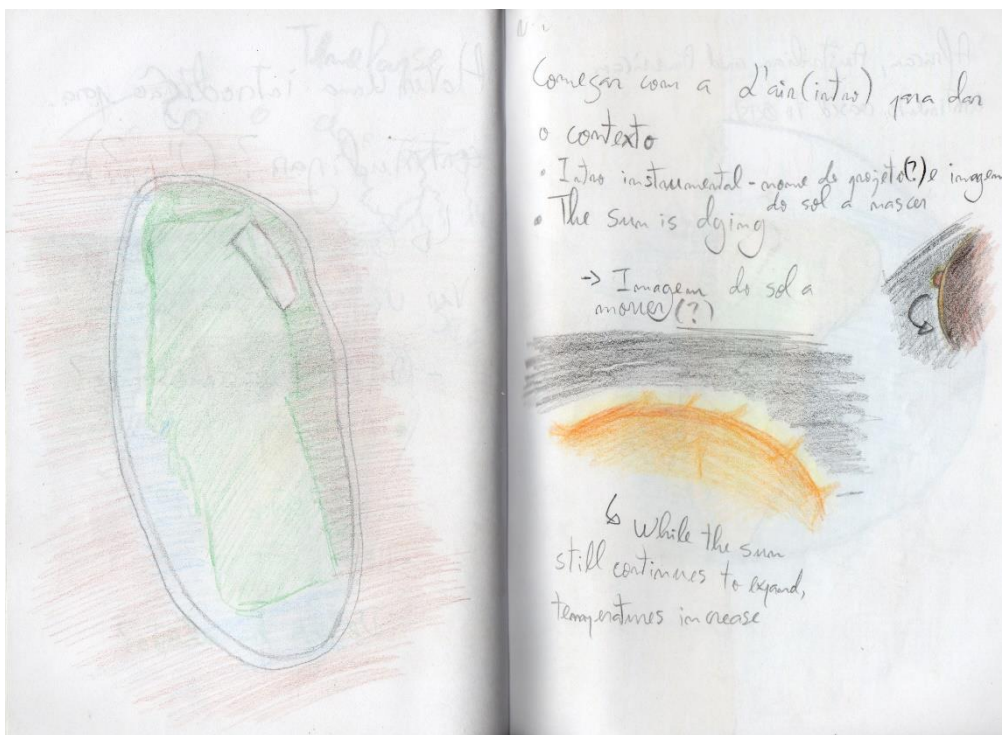 Começar com a L'air (intro) para dar
o contexto
• Intro instrumental - nome do projeto (?) e imagem
do sol a nascer
• The sun is dying
→ Imagem do sol a
morrer (?)
↳ While the sun
still continues to expand,
temperatures increase